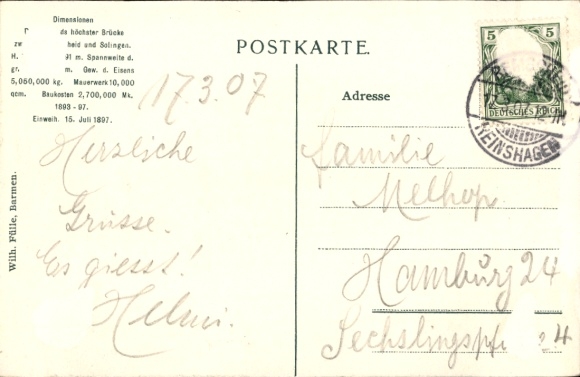 Dimensionen
de höchster Brücke
zw heid und Solingen.
H. 91 m. Spannweite d.
gr. m. Gew. d. Eisens
5,050,000 kg. Mauerwerk 10,000
qom. Baukosten 2,700,000 Mk.
1893-97.
Einweih. 15. Juli 1897.
Wilh. Fülle, Barmen.
17.3.07
Herzliche
Grüsse.
Es giesst!
Helmi.
POSTKARTE.
Adresse
5 5
DEUTSCHES REICH
REINSHAGEN
Familie
Melhop.
Hamburg 24
Sechslingspf 4